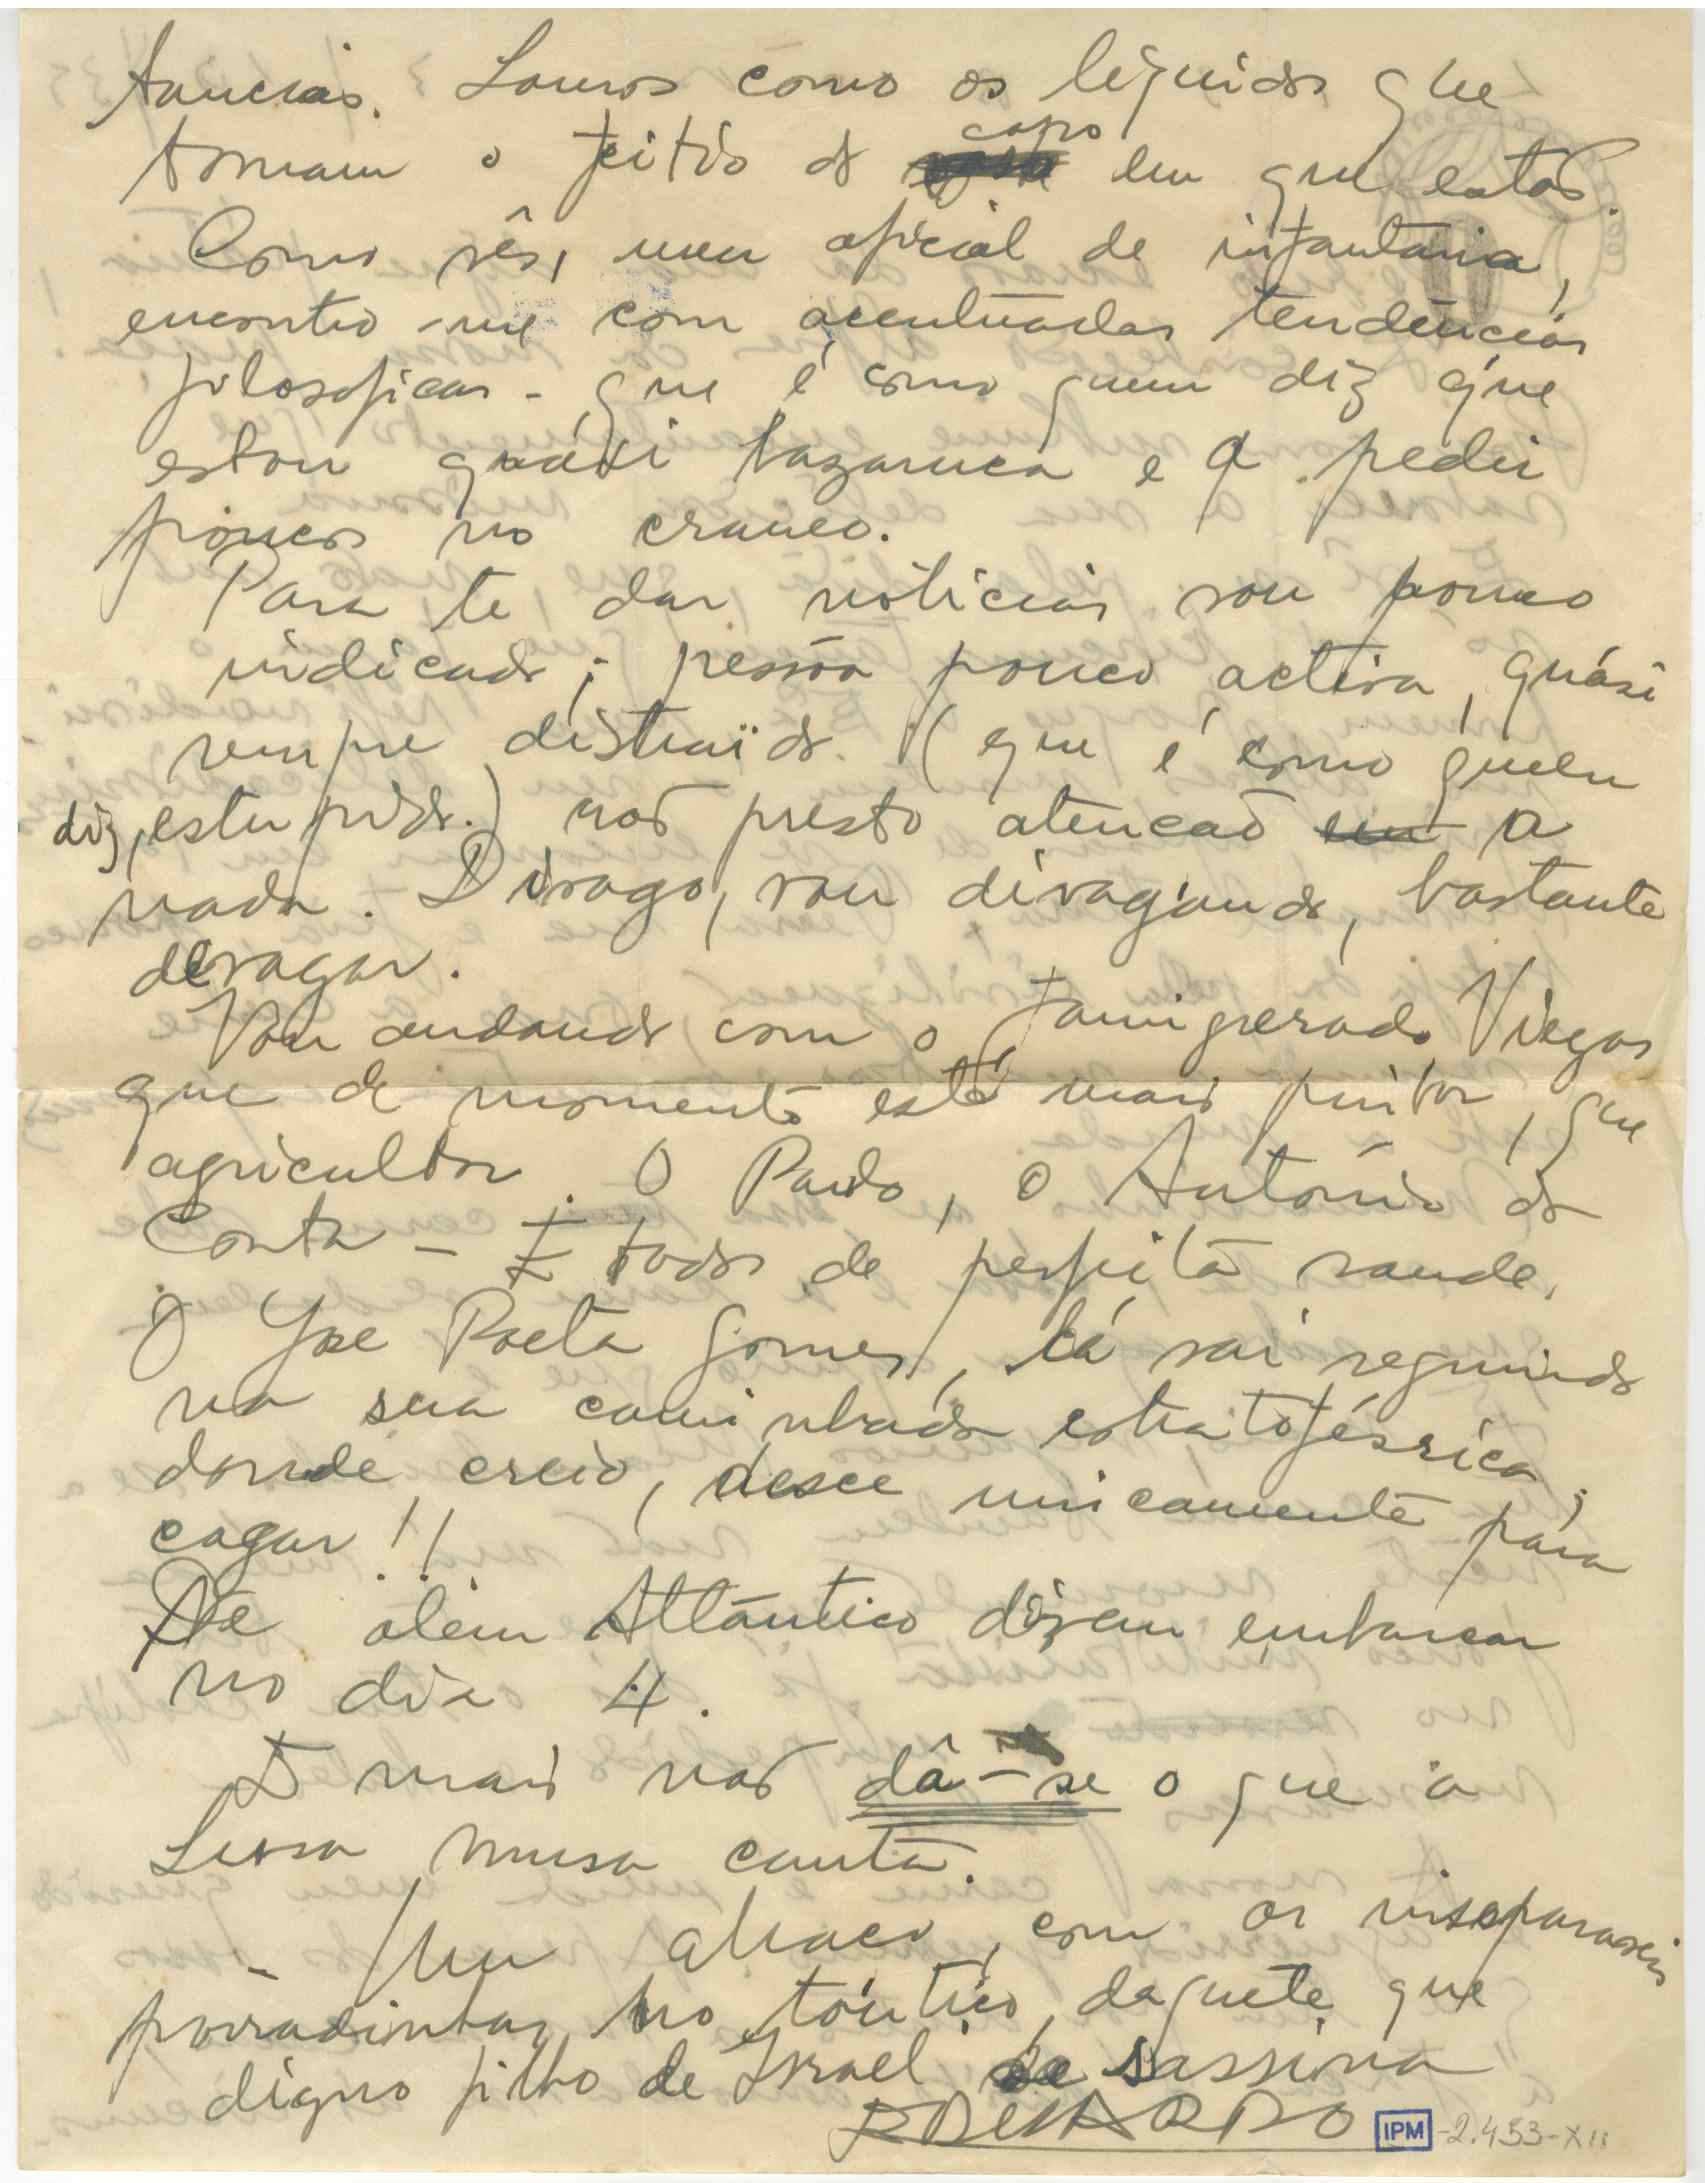 tancias. Somos como os liquidos que
tomam o feitio do copo em que estão.
Como vês, meu oficial de infantaria,
encontro-me com acentuadas tendências
filosoficas - que é como quem diz que
estou quási tazaruca e a pedir
no craneo.
Para te dar noticias sou pouco
indicado; pessôa pouco activa, quási
sempre distraïdo (que é como quem
diz, estupido.) não presto atencão a
nada. Divago, vou divagando, bastante
devagar.
Vou andando com o famigerado Viegas
que de momento está mais pintor, que
agricultor. O Paulo, o António da
Costa - E todos de perfeita saude.
O José Poeta Gomes, lá vai seguindo
na sua caminhada estratosférica,
donde, creio, desce unicamente para
cagar!!
De alem Atlântico dizem embarcar
no dia 4.
E mais não dâ-se o que a
Lussa musa canta.
- Um abraco, com as inseparaveis
no toutico, daquele que
digno filho de Israel se assina
IPM -2.453-XII